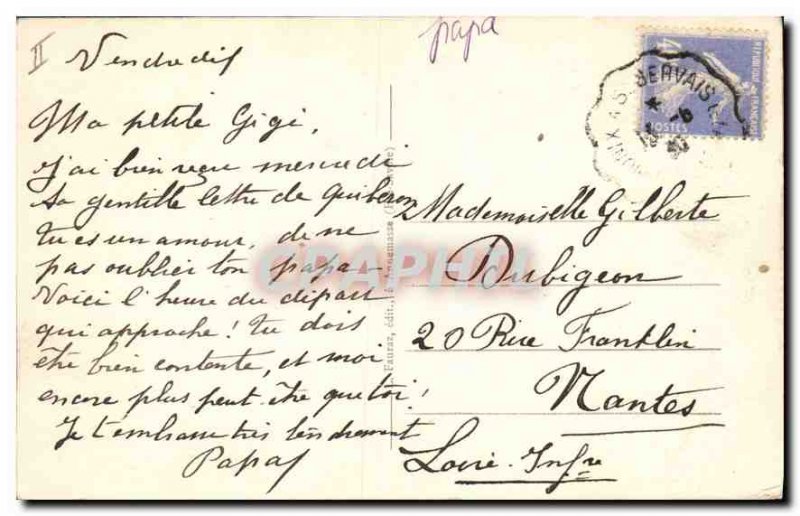 papa
II Vendredi
Ma petite Gigi,
J'ai bien reçu mercredi
ta gentille lettre de Quiberon
tu es un amour, de ne
pas oublier ton papa
Voici l'heure du départ
qui approche! tu dois
être bien contente, et moi
encore plus peut-être que toi!
Je t'embrasse très tendrement
Papa
Mademoiselle Gilberte
Dubigeon
20 Rue Franklin
Nantes
Loire-Infre
CPAPHIL
Fauraz, édit.
RÉPUBLIQUE FRANÇAISE
POSTES
GERVAIS